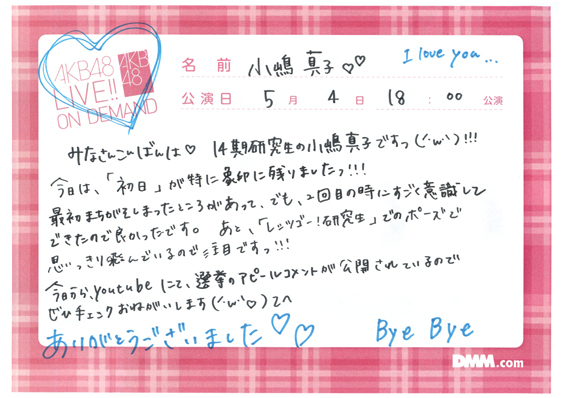 AKB48
LIVE!!
ON DEMAND
AKB
48
名前 小嶋 真子♡♡
I love you...
公演日 5月 4日 18:00 公演
みなさんこんばんは♡ 14期研究生の小嶋真子ですっ(´･ω･`)!!!
今日は、「初日」が特に象印に残りましたっ!!!
最初まちがえしまったところがあって、でも、2回目の時にすごく意識して
できたので良かったです。 あと、「レッツゴー!研究生」でのポーズで
思いっきり遊んでいるので注目ですっ!!!
今日から、youtubeにて、選挙のアピールコメントが公開されているので
ぜひチェックおねがいします(´･ω･`♡)
ありがとうございました♡♡
Bye Bye
DMM.com